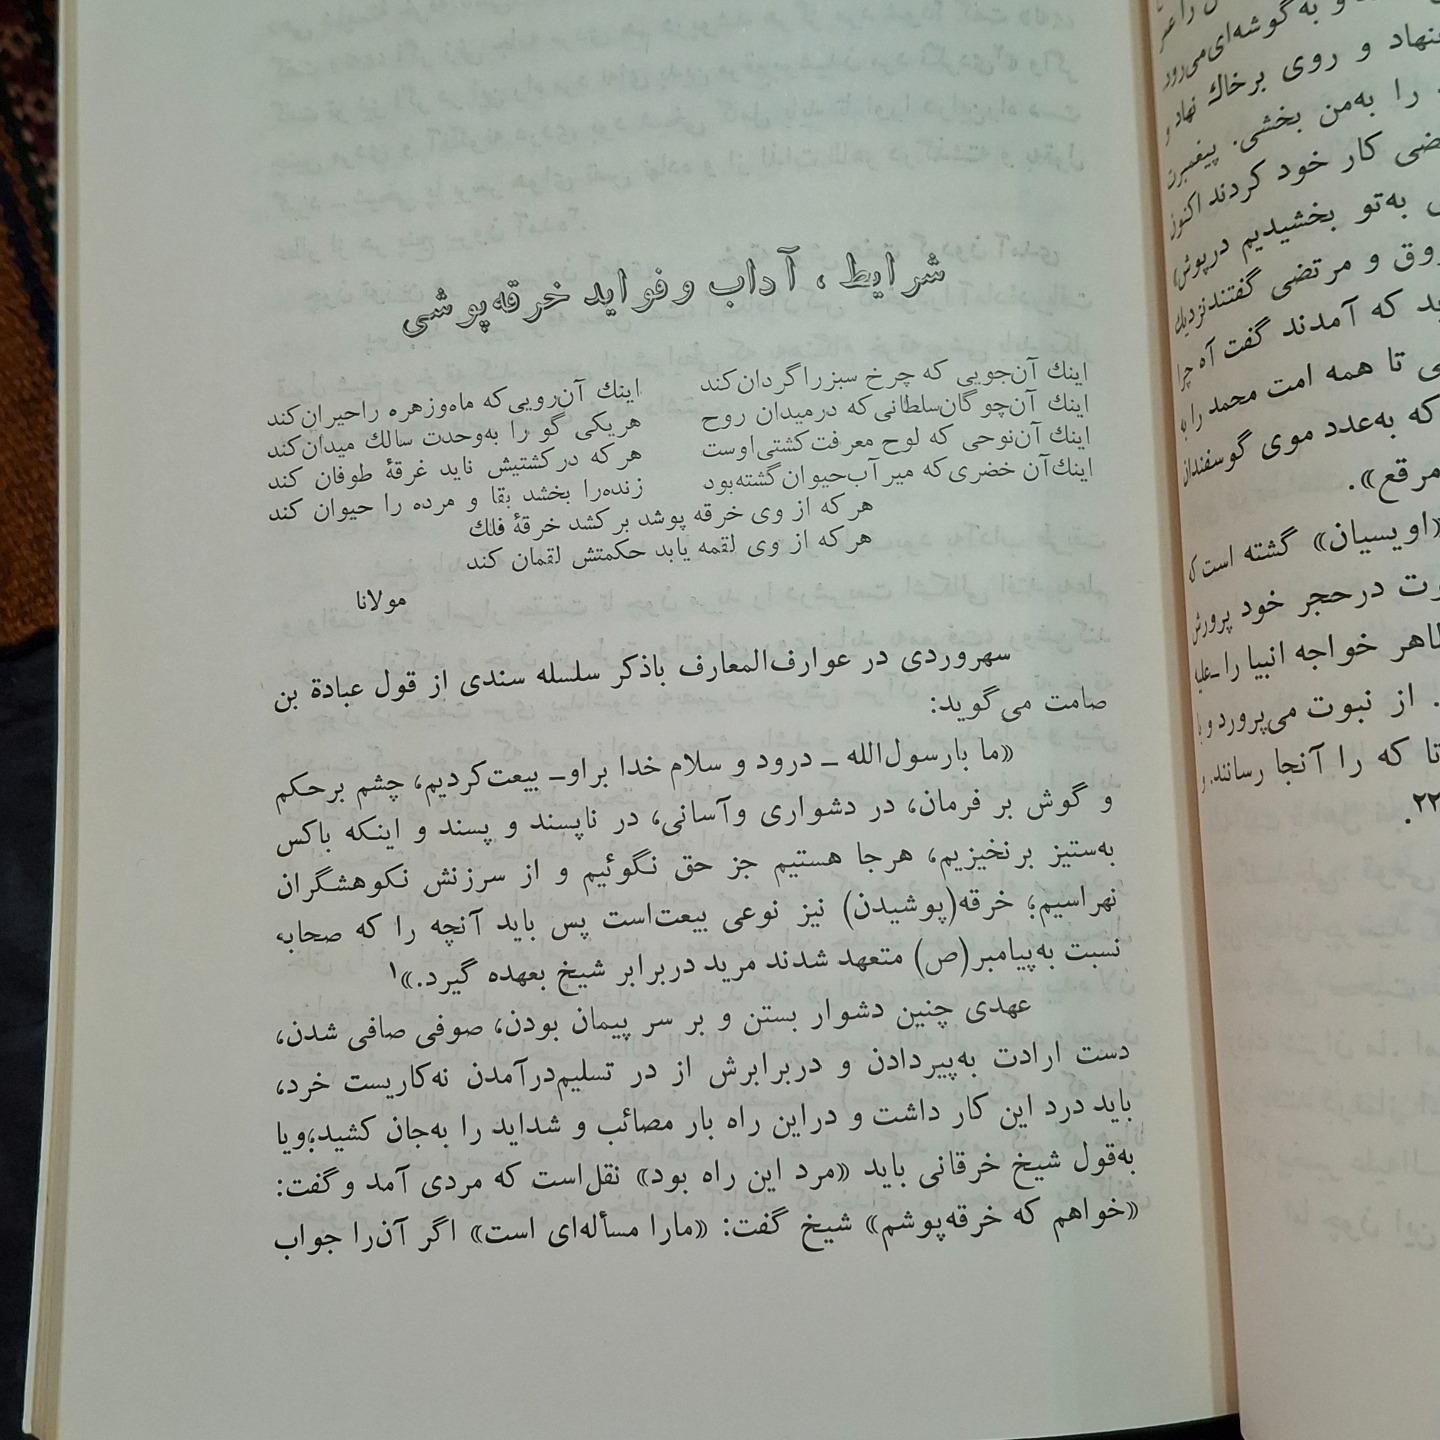 شرایط، آداب و فواید خرقه‌پوشی
اینك آن‌جویی که چرخ سبزرا گردان‌کند
اینك آن‌رویی‌که ماه‌وزهره راحیران‌کند
اینك آن‌چوگان‌سلطانی‌که درمیدان روح
هریکی گو را به‌وحدت سالك میدان‌کند
اینك آن‌نوحی که لوح معرفت‌کشتی‌اوست
هرکه درکشتیش ناید غرقهٔ طوفان کند
اینك‌آن خضری‌که میرآب‌حیوان‌گشته‌بود
زنده‌را بخشد بقا و مرده را حیوان کند
هرکه از وی خرقه پوشد برکشد خرقهٔ فلك
هرکه از وی لقمه یابد حکمتش لقمان کند
مولانا
سهروردی در عوارف‌المعارف باذکر سلسله سندی از قول عبادة بن
صامت می‌گوید:
«ما بارسول‌الله ــ درود و سلام خدا براوــ بیعت‌کردیم، چشم برحکم
و گوش بر فرمان، در دشواری وآسانی، در ناپسند و پسند و اینکه باکس
به‌ستیز برنخیزیم، هرجا هستیم جز حق نگوئیم و از سرزنش نکوهشگران
نهراسیم؛ خرقه(پوشیدن) نیز نوعی بیعت‌است پس باید آنچه را که صحابه
نسبت به‌پیامبر(ص) متعهد شدند مرید دربرابر شیخ بعهده گیرد.»۱
عهدی چنین دشوار بستن و بر سر پیمان بودن، صوفی صافی شدن،
دست ارادت به‌پیردادن و دربرابرش از در تسلیم‌درآمدن نه‌کاریست خرد،
باید درد این کار داشت و دراین راه بار مصائب و شداید را به‌جان کشید؛ویا
به‌قول شیخ خرقانی باید «مرد این راه بود» نقل‌است که مردی آمد وگفت:
«خواهم که خرقه‌پوشم» شیخ گفت: «مارا مسأله‌ای است» اگر آن‌را جواب
به‌گوشه‌ای‌می‌رود
و روی برخاك نهاد و
را به‌من بخشی. پیغمبرت
کار خود کردند اکنون
به‌تو بخشیدیم درپوش)
و مرتضی گفتندنزدیك
که آمدند گفت آه چرا
تا همه امت محمد را به
که به‌عدد موی گوسفندان
مرقع».
«اویسیان» گشته است که
درحجر خود پرورش
خواجه انبیا را ــ علیه
. از نبوت می‌پرورد و با
تا که را آنجا رسانند. و